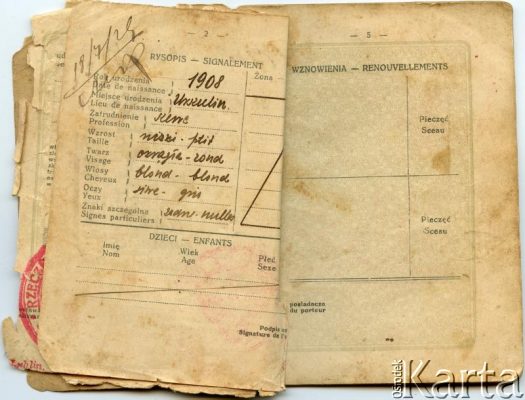 - 2 -
RYSOPIS — SIGNALEMENT
Rok urodzenia
Date de naissance
1908
Żona
Miejsce urodzenia
Lieu de naissance
Urszulin
Zatrudnienie
Profession
Wzrost
Taille
nizki - ptit
Twarz
Visage
okrągła - rond
Włosy
Cheveux
blond - blond
Oczy
Yeux
siwe - gris
Znaki szczególne
Signes particuliers
żadne - nulles
DZIECI — ENFANTS
Imię
Nom
Wiek
Age
Płeć
Sexe
Podpis
Signature de
- 5 -
WZNOWIENIA — RENOUVELLEMENTS
Pieczęć
Sceau
Pieczęć
Sceau
posiadacza
du porteur
RZECZ
Lublin,
ośrodek
Karta